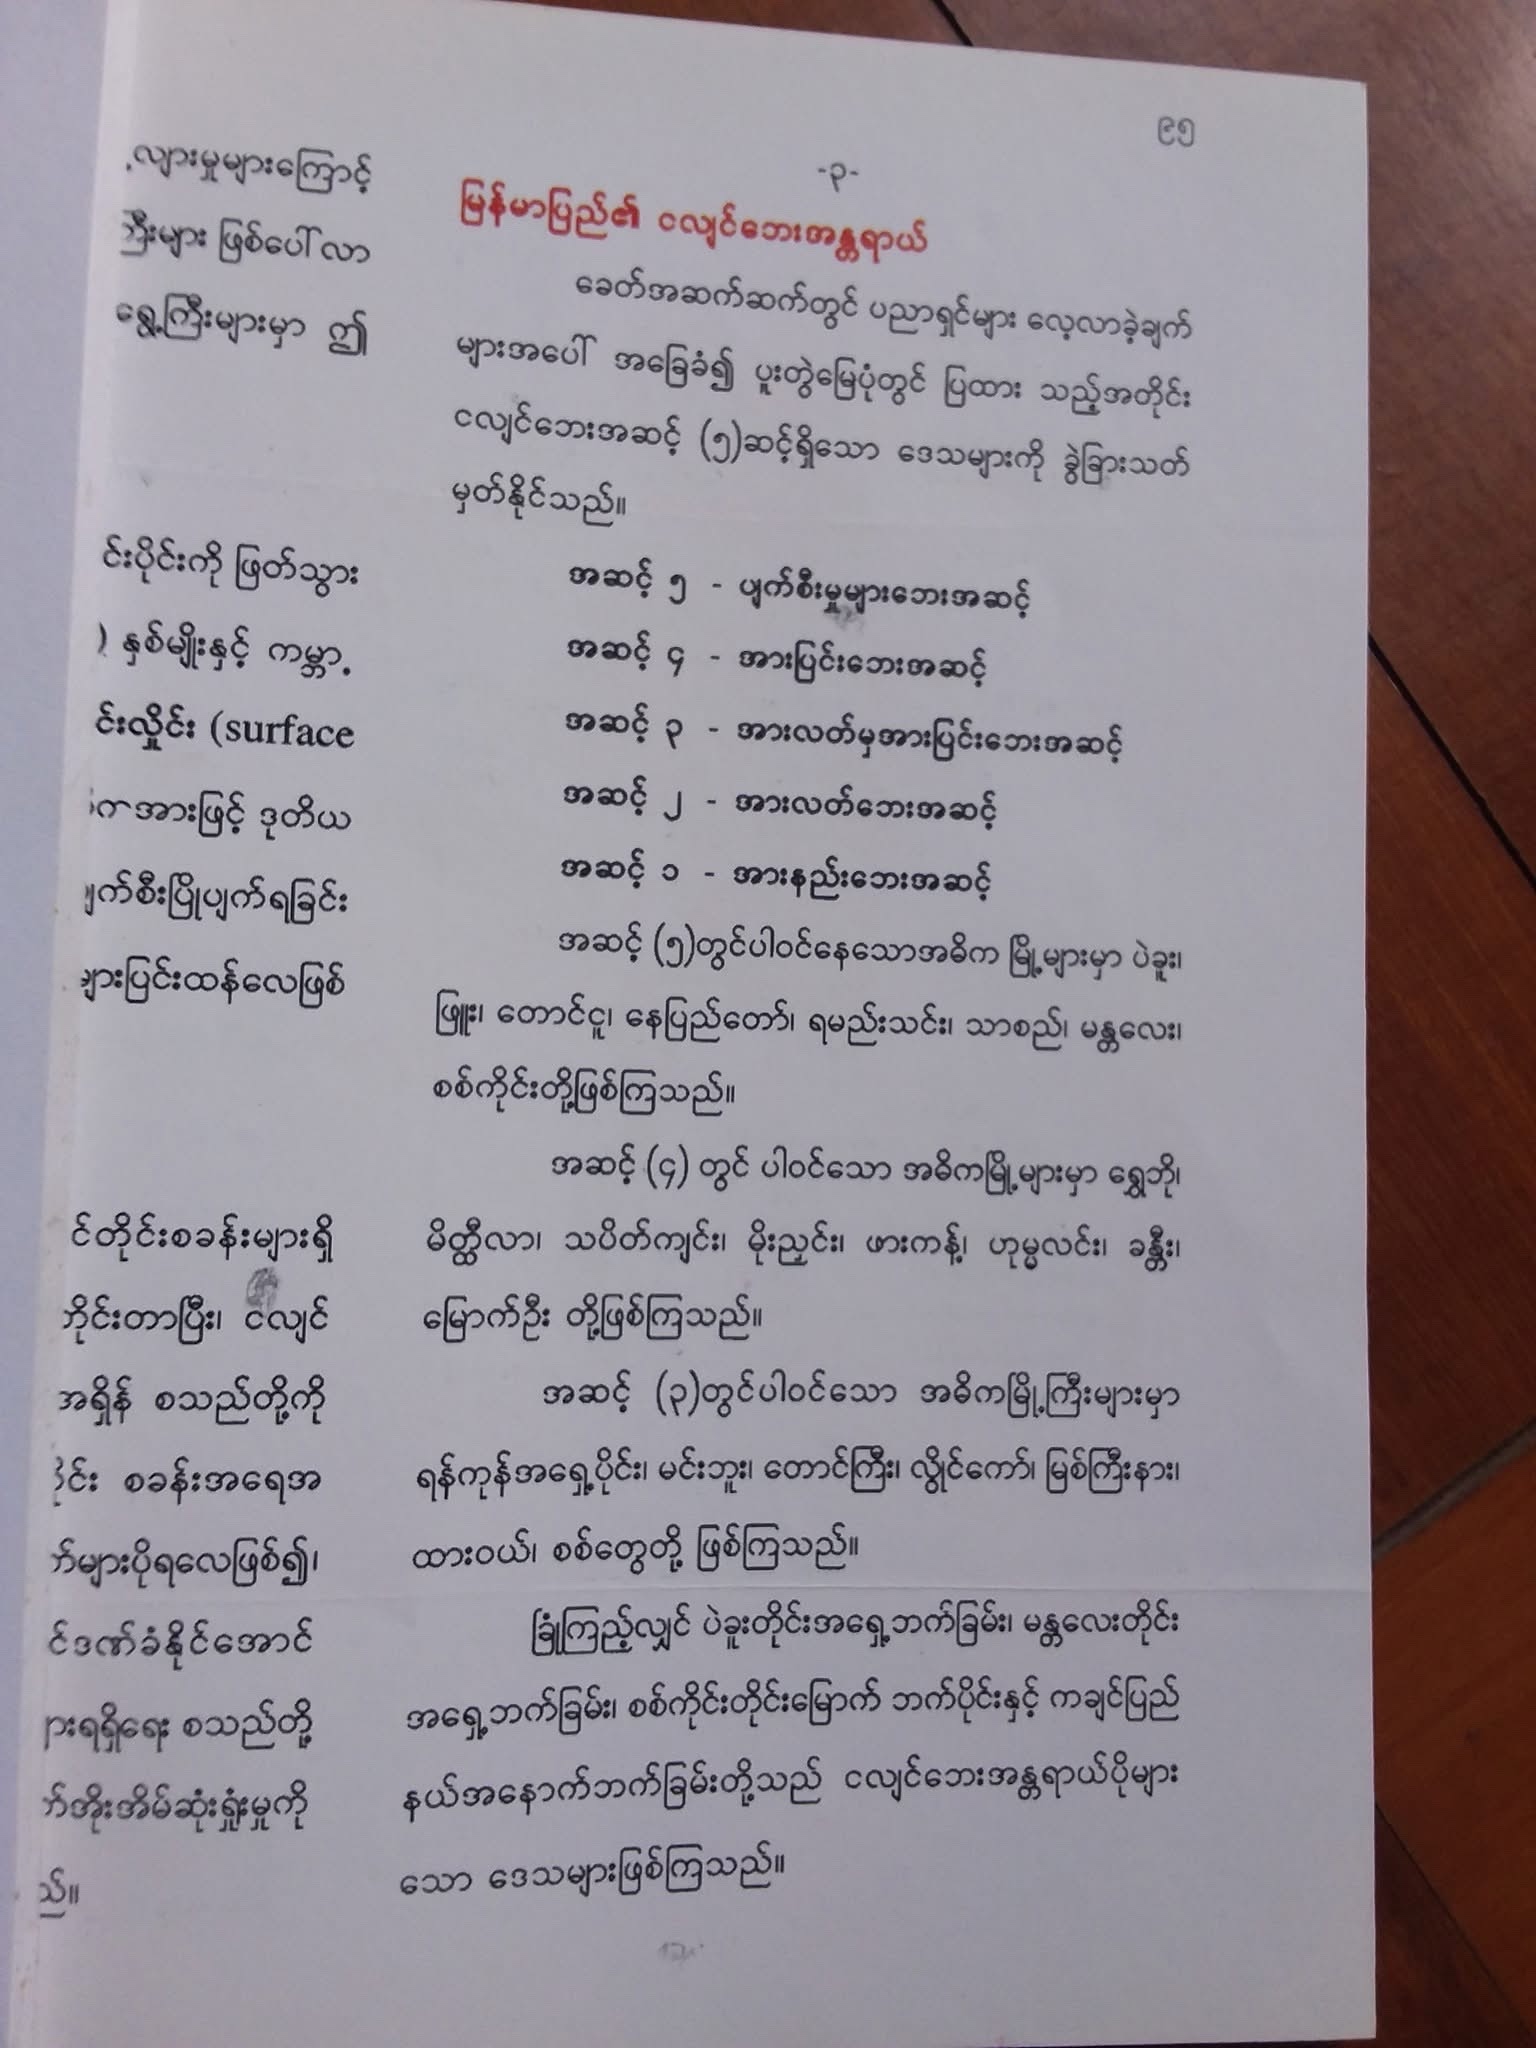 ၉၅
-၃-
မြန်မာပြည်၏ ငလျင်ဘေးအန္တရာယ်
ခေတ်အဆက်ဆက်တွင် ပညာရှင်များ လေ့လာခဲ့ချက်
များအပေါ် အခြေခံ၍ ပူးတွဲမြေပုံတွင် ပြထား သည့်အတိုင်း
ငလျင်ဘေးအဆင့် (၅)ဆင့်ရှိသော ဒေသများကို ခွဲခြားသတ်
မှတ်နိုင်သည်။
အဆင့် ၅ - ပျက်စီးမှုများဘေးအဆင့်
အဆင့် ၄ - အားပြင်းဘေးအဆင့်
အဆင့် ၃ - အားလတ်မှအားပြင်းဘေးအဆင့်
အဆင့် ၂ - အားလတ်ဘေးအဆင့်
အဆင့် ၁ - အားနည်းဘေးအဆင့်
အဆင့် (၅)တွင်ပါဝင်နေသောအဓိက မြို့များမှာ ပဲခူး၊
ဖြူး၊ တောင်ငူ၊ နေပြည်တော်၊ ရမည်းသင်း၊ သာစည်၊ မန္တလေး၊
စစ်ကိုင်းတို့ဖြစ်ကြသည်။
အဆင့် (၄) တွင် ပါဝင်သော အဓိကမြို့များမှာ ရွှေဘို၊
မိတ္ထီလာ၊ သပိတ်ကျင်း၊ မိုးညှင်း၊ ဖားကန့်၊ ဟုမ္မလင်း၊ ခန္တီး၊
မြောက်ဦး တို့ဖြစ်ကြသည်။
အဆင့် (၃)တွင်ပါဝင်သော အဓိကမြို့ကြီးများမှာ
ရန်ကုန်အရှေ့ပိုင်း၊ မင်းဘူး၊ တောင်ကြီး၊ လွိုင်ကော်၊ မြစ်ကြီးနား၊
ထားဝယ်၊ စစ်တွေတို့ ဖြစ်ကြသည်။
ခြုံကြည့်လျှင် ပဲခူးတိုင်းအရှေ့ဘက်ခြမ်း၊ မန္တလေးတိုင်း
အရှေ့ဘက်ခြမ်း၊ စစ်ကိုင်းတိုင်းမြောက် ဘက်ပိုင်းနှင့် ကချင်ပြည်
နယ်အနောက်ဘက်ခြမ်းတို့သည် ငလျင်ဘေးအန္တရာယ်ပိုများ
သော ဒေသများဖြစ်ကြသည်။
လျားမှုများကြောင့်
ကြီးများ ဖြစ်ပေါ်လာ
ရွေ့ကြီးများမှာ ဤ
င်းပိုင်းကို ဖြတ်သွား
) နှစ်မျိုးနှင့် ကမ္ဘာ့
င်းလှိုင်း (surface
အားဖြင့် ဒုတိယ
ျက်စီးပြိုပျက်ရခြင်း
များပြင်းထန်လေဖြစ်
င်တိုင်းစခန်းများရှိ
တိုင်းတာပြီး၊ ငလျင်
အရှိန် စသည်တို့ကို
ိုင်း စခန်းအရေအ
က်များပိုရလေဖြစ်၍၊
င်ဒဏ်ခံနိုင်အောင်
ားရရှိရေး စသည်တို့
က်အိုးအိမ်ဆုံးရှုံးမှုကို
ည်။